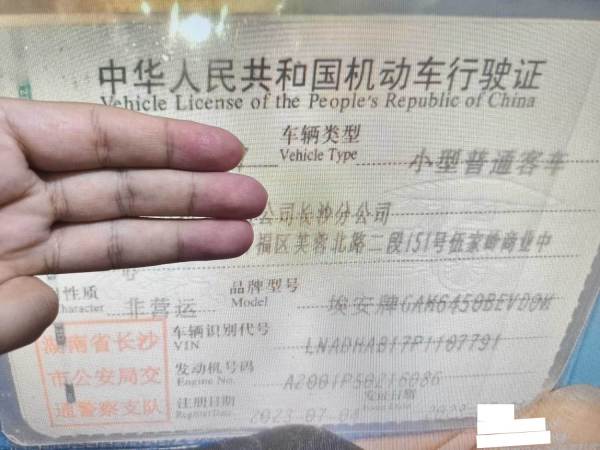 中华人民共和国机动车行驶证
Vehicle License of the People's Republic of China
车辆类型 小型普通客车
Vehicle Type
公司长沙分公司
福区芙蓉北路二段151号伍家岭商业中
心
性质 非营运 品牌型号 埃安牌GAM6450BEVD0W
Character Model
车辆识别代号 LNADHAB17P1107791
VIN
发动机号码 A2001P50216086
Engine No.
注册日期 2023-07-04 发证日期
Register Date Issue Date
湖南省长沙
市公安局交
通警察支队